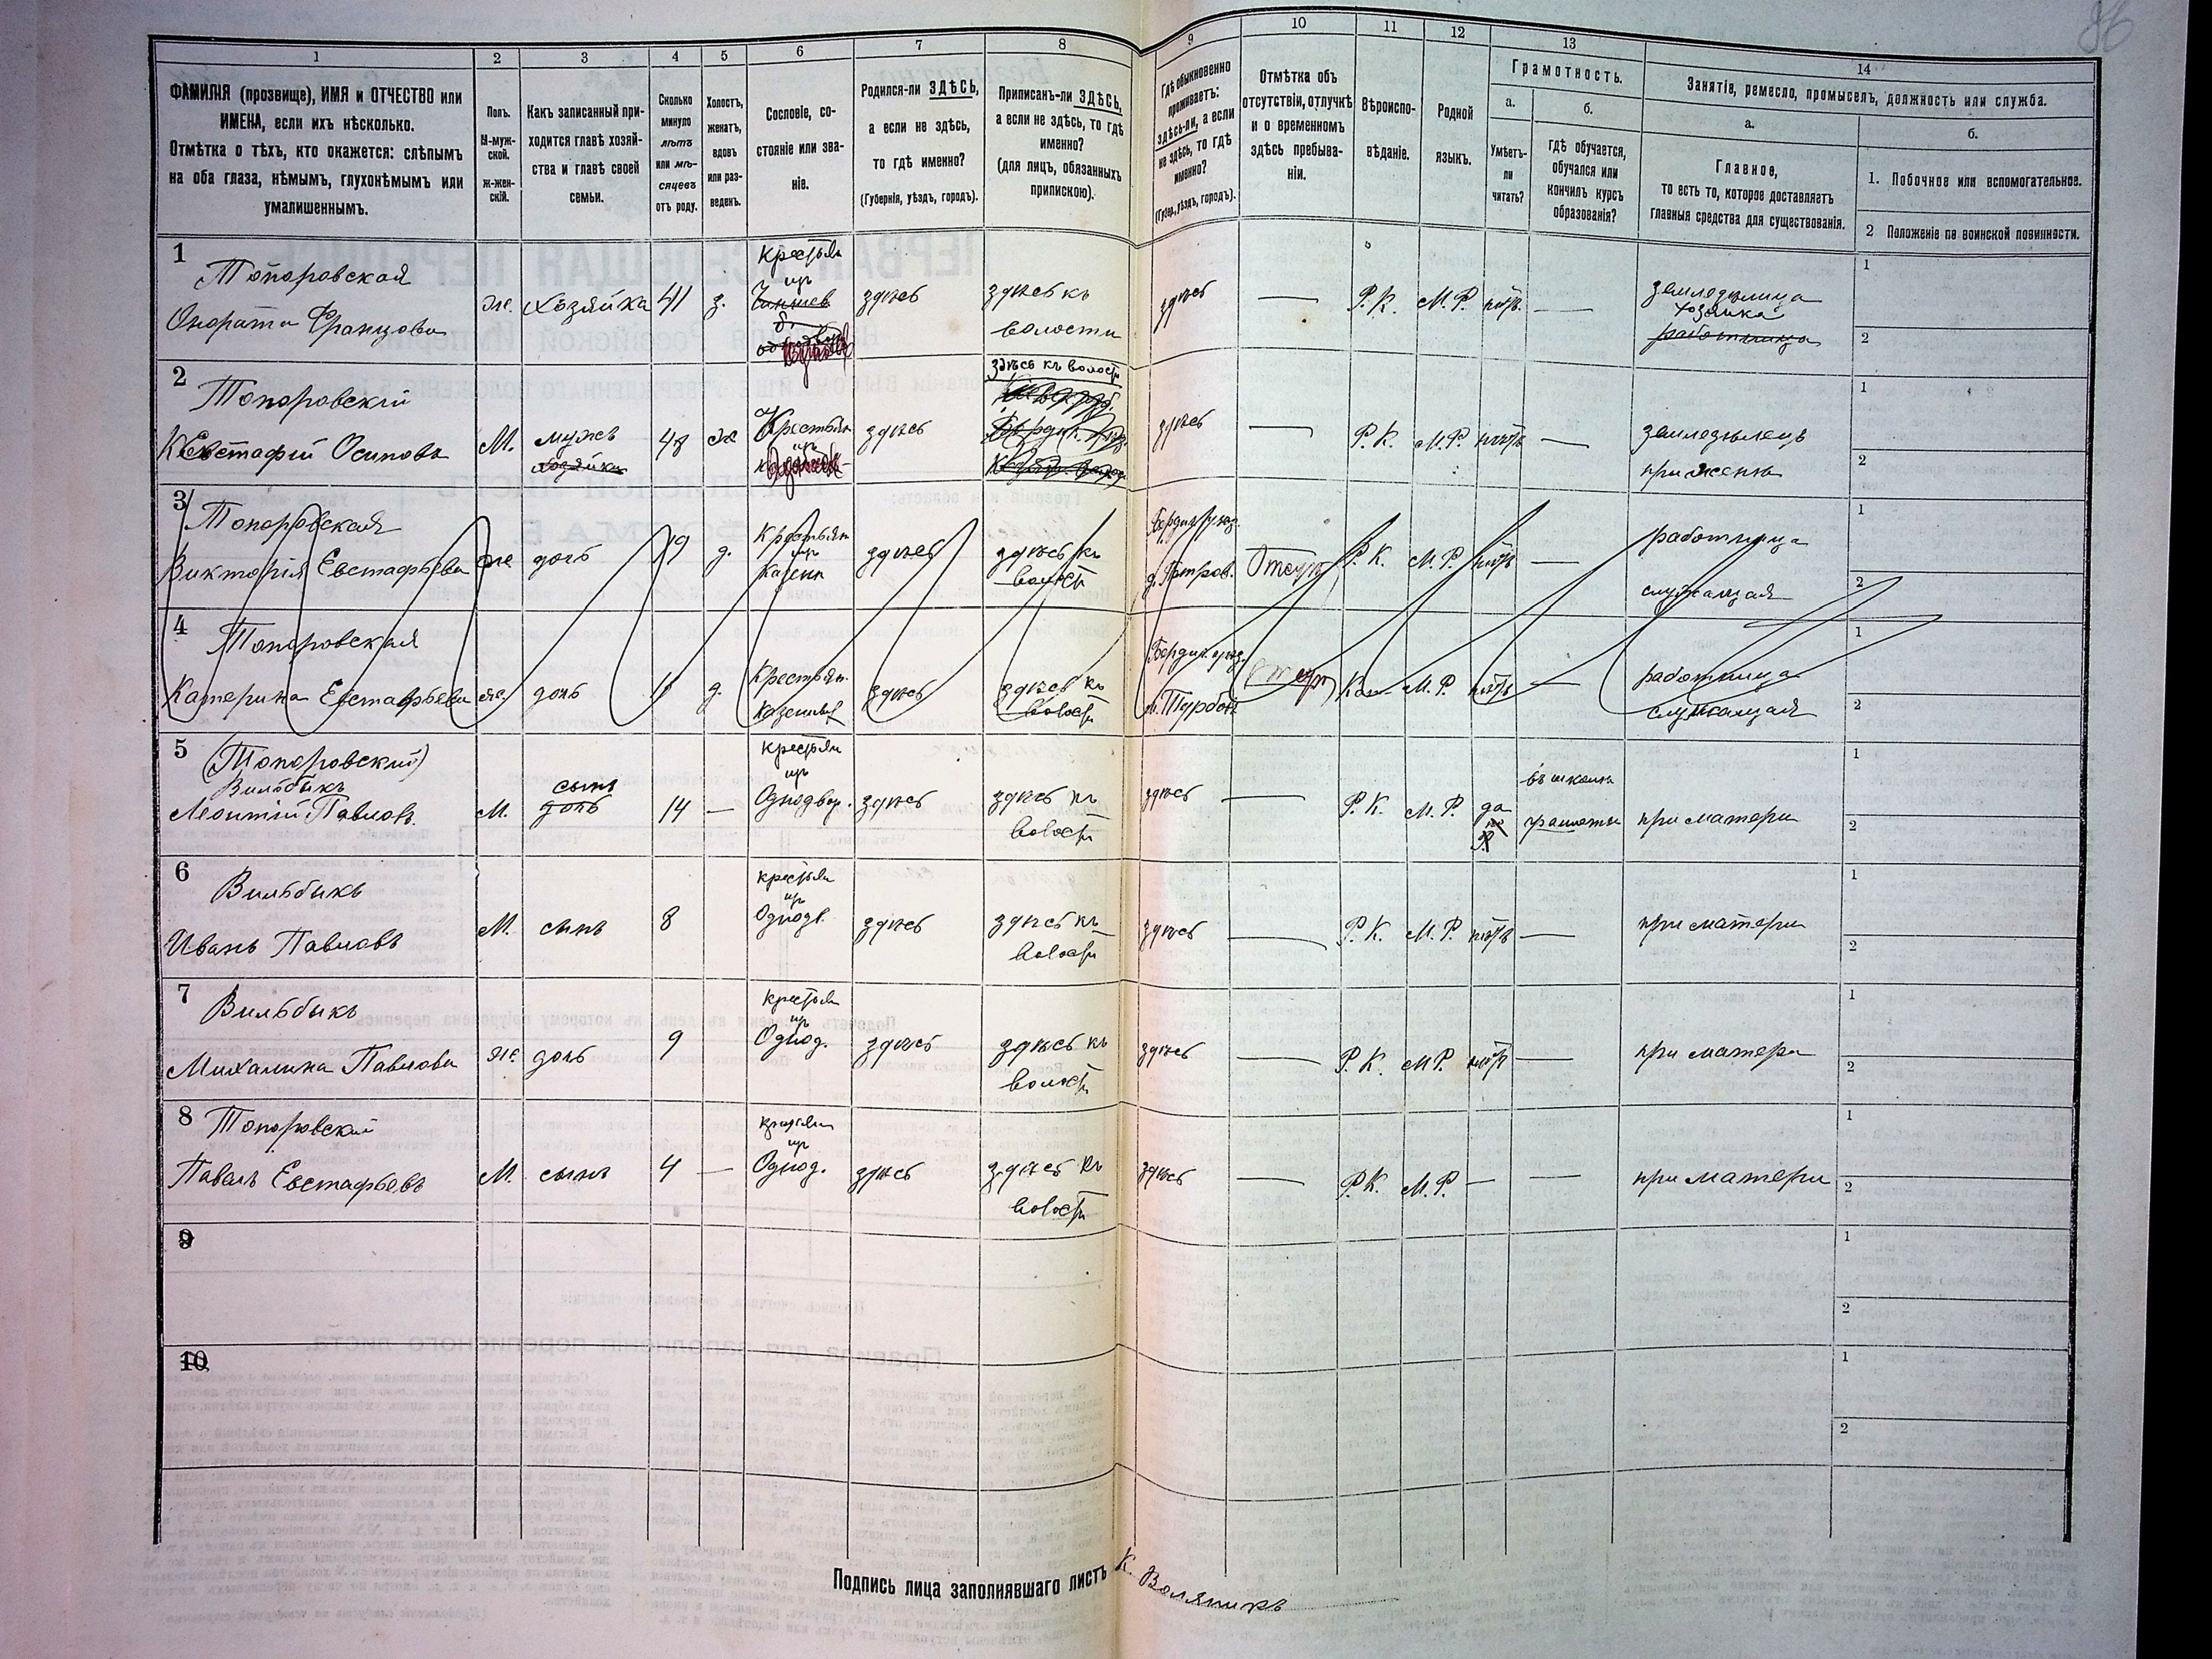 86
1
2
3
4
5
6
7
8
9
10
11
12
13
14
ФАМИЛІЯ (прозвище), ИМЯ и ОТЧЕСТВО или
ИМЕНА, если ихъ нѣсколько.
Отмѣтка о тѣхъ, кто окажется: слѣпымъ
на оба глаза, нѣмымъ, глухонѣмымъ или
умалишеннымъ.
Полъ.
М-муж-
ской.
ж-жен-
скій.
Какъ записанный при-
ходится главѣ хозяй-
ства и главѣ своей
семьи.
Сколько
минуло
лѣтъ
или мѣ-
сяцевъ
отъ роду.
Холостъ,
женатъ,
вдовъ
или раз-
веденъ.
Сословіе, со-
стояніе или зва-
ніе.
Родился-ли ЗДѢСЬ,
а если не здѣсь,
то гдѣ именно?
(Губернія, уѣздъ, городъ).
Приписанъ-ли ЗДѢСЬ,
а если не здѣсь, то гдѣ
именно?
(для лицъ, обязанныхъ
припискою).
Гдѣ обыкновенно
проживаетъ:
здѣсь-ли, а если
не здѣсь, то гдѣ
именно?
(Губер., уѣздъ, городъ).
Отмѣтка объ
отсутствіи, отлучкѣ
и о временномъ
здѣсь пребыва-
ніи.
Вѣроиспо-
вѣданіе.
Родной
языкъ.
Грамотность.
а.
Умѣетъ-
ли
читать?
б.
гдѣ обучается,
обучался или
кончилъ курсъ
образованія?
Занятіе, ремесло, промыселъ, должность или служба.
а.
Главное,
то есть то, которое доставляетъ
главныя средства для существованія.
б.
1. Побочное или вспомогательное.
2 Положеніе по воинской повинности.
1
Топоровская
Онората Францова
же.
хозяйка
41
з.
Крестьян
из
здѣсь
здѣсь къ
волости
здѣсь
—
Р. К.
М. Р.
нѣтъ.
—
земледѣлица
хозяйка
работница
1
2
2
Топоровскій
Евстафій Осиповъ
М.
мужъ
хозяйки
48
же
Крестьян
из
здѣсь
здѣсь къ волости
здѣсь
—
Р. К.
М. Р.
нѣтъ
—
земледѣлецъ
при женѣ
1
2
3
Топоровская
Викторія Евстафьева
же
дочь
19
д.
Крестьян
из
казенн
здѣсь
здѣсь къ
волост
Бердич. уѣзд.
Отсут
Р. К.
М. Р.
нѣтъ
—
работница
служащая
1
2
4
Топоровская
Катерина Евстафьева
же.
дочь
д.
Крестьян.
казенных
здѣсь
здѣсь къ
волости
Бердич. уѣзд.
м. Турбов
отсут
М. Р.
нѣтъ
—
работница
служащая
1
2
5
(Топоровскій)
Вильбыкъ
Леонтій Павловъ.
М.
сынъ
дочь
14
—
крестьян
из
Однодвор.
здѣсь
здѣсь къ
волости
здѣсь
—
Р. К.
М. Р.
да
въ школѣ
грамоты
при матери
1
2
6
Вильбыкъ
Иванъ Павловъ
М.
сынъ
8
крестьян
из
Однодв.
здѣсь
здѣсь къ
волости
здѣсь
—
Р. К.
М. Р.
нѣтъ
—
при матери
1
2
7
Вильбыкъ
Михалина Павлова
же.
дочь
9
крестьян
из
Однод.
здѣсь
здѣсь къ
волости
здѣсь
—
Р. К.
М. Р.
нѣтъ
—
при матери
1
2
8
Топоровскій
Павелъ Евстафьевъ
М.
сынъ
4
—
крестьян
из
Однод.
здѣсь
здѣсь къ
волости
здѣсь
—
Р. К.
М. Р.
—
—
при матери
1
2
9
1
2
10
1
2
Подпись лица заполнявшаго листъ К. Воляникъ